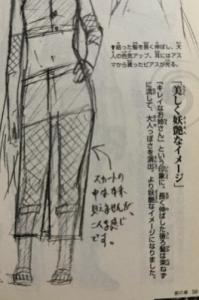 ↑結った髪を長く伸ばし、大
人の色気アップ。耳にはアス
マから貰ったピアスが光る。
「美しく妖艶なイメージ」
「キレイなお姉さん」という印象に。長く伸ばした後ろ髪は束ねず
に流して、大人っぽさを演出。より妖艶なイメージになりました。
スカートの
中は
見えませんが
こんな感じ
です。